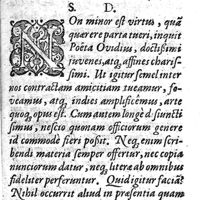 S. D.
NOn minor est virtus, quã
quærere parta tueri, inquit
Poëta Ovidius, doctissimi
juvenes, atq́; affines charis-
simi. Ut igitur semel inter
nos contractam amicitiam tueamur, fo-
veamus, atq́; indies amplificemus, arte
quoq́; opus est. Cum autem longè disjunctis-
simus, nescio quonam officiorum genere
id commodè fieri possit. Neq́; enim scri-
bendi materia semper offertur, nec copia
nunciorum datur, neq́; litera ab omnibus
fideliter perferuntur. Quid igitur faciã?
Nihil occurrit aliud in præsentia quam